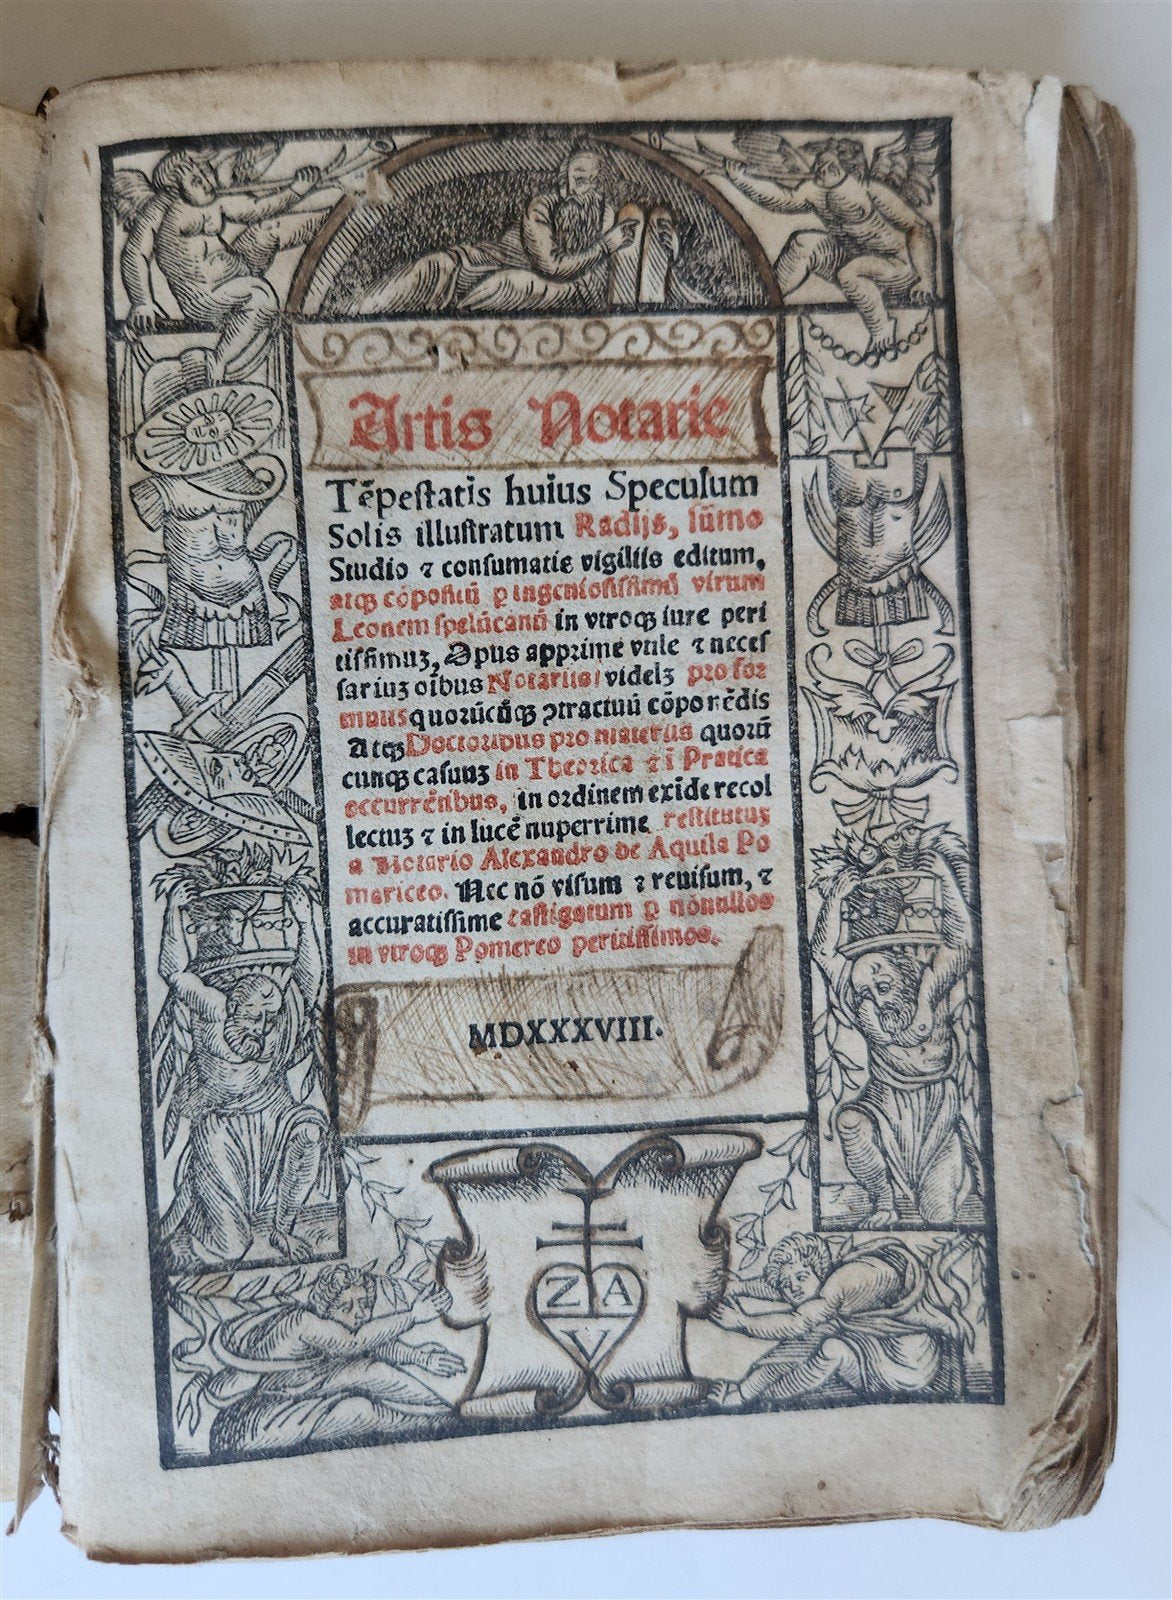 Artis Notarie
Tēpestatis huius Speculum
Solis illustratum Radijs, sūmo
Studio ⁊ consumatis vigiliis editum,
atqꝫ cōpositū ꝑ ingeniosissimū virum
Leonem spelūcanū in vtroqꝫ iure peri
tissimuꝫ, Opus apprime vtile ⁊ neces
sariuꝫ oībus Notariis/ videlꝫ pro for
mulis quorūcūqꝫ ꝯtractuū cōponēdis
Atqꝫ Doctoribus pro materiis quorū
cunqꝫ casuuꝫ in Theorica ⁊ ī Pratica
occurrētibus, in ordinem exīde recol
lectuꝫ ⁊ in lucē nuperrime restitutuꝫ
a Notario Alexandro de Aquila Po
mericeo. Nec nō visum ⁊ reuisum, ⁊
accuratissime castigatum ꝑ nōnullos
in vtroqꝫ Pomereo peritissimos.
MDXXXVIII.
Z A
V